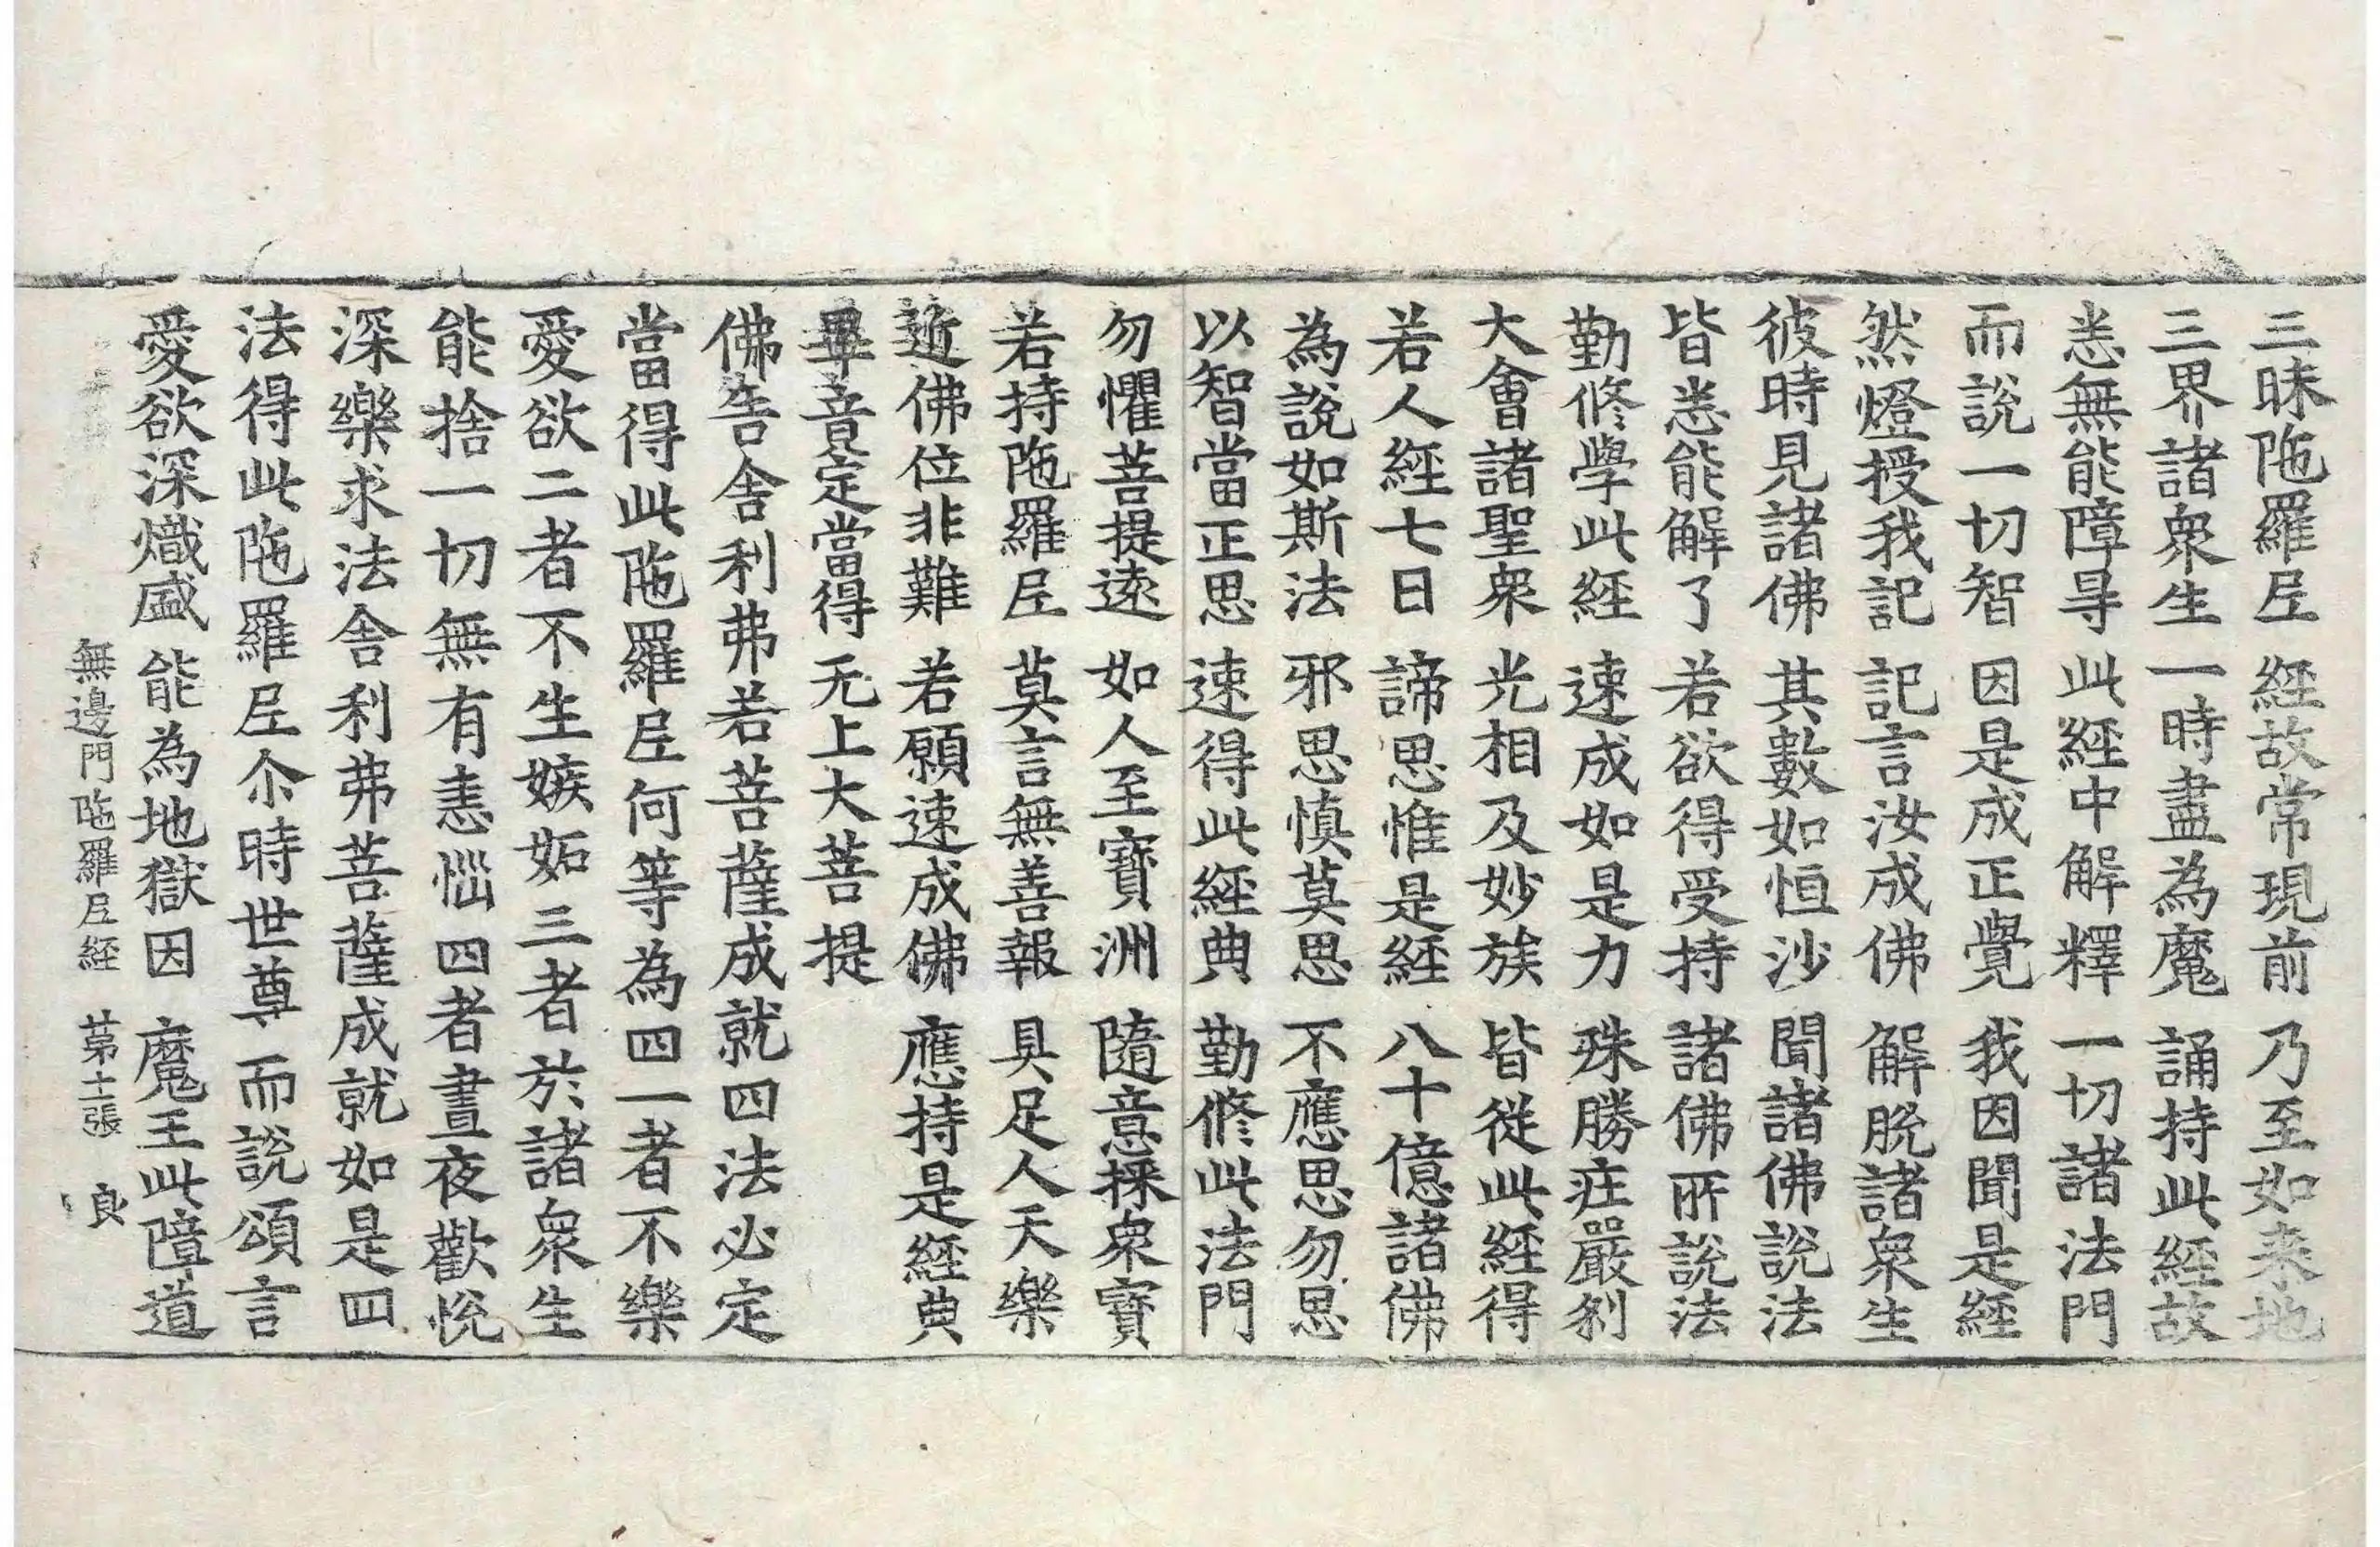 三昧陁羅𡰱　經故常現前　乃至如来地
三界諸衆生　一時盡為魔　誦持此經故
悉無能障㝵　此經中解釋　一切諸法門
而説一切智　因是成正覺　我因聞是經
然燈授我記　記言汝成佛　解脱諸衆生
彼時見諸佛　其數如恒沙　聞諸佛説法
皆悉能解了　若欲得受持　諸佛所説法
勤修學此經　速成如是力　殊勝庄嚴剎
大會諸聖衆　光相及妙族　皆從此經得
若人經七日　諦思惟是經　八十億諸佛
為説如斯法　邪思慎莫思　不應思勿思
以智當正思　速得此經典　勤修此法門
勿懼菩提逺　如人至寶洲　隨意採衆寶
若持陁羅𡰱　莫言無善報　具足人天樂
近佛位非難　若願速成佛　應持是經典
畢竟定當得　无上大菩提
佛告舎利弗若菩薩成就四法必定
當得此陁羅𡰱何等為四一者不樂
愛欲二者不生嫉妬三者於諸衆生
能捨一切無有恚惱四者晝夜歡悦
深樂求法舎利弗菩薩成就如是四
法得此陁羅𡰱尒時世尊而説頌言
愛欲深熾盛　能為地獄因　魔王此障道
無邊門陁羅𡰱經　苐十二張　良